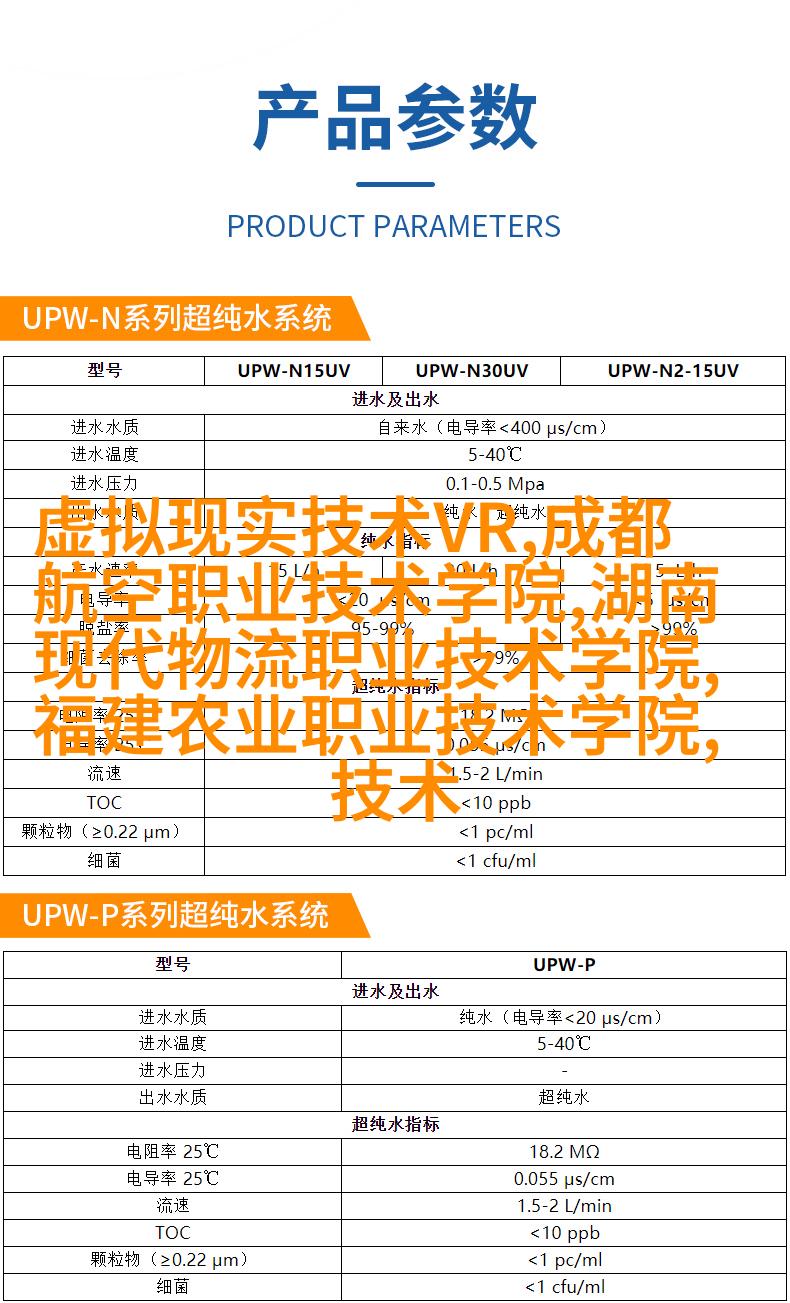 产品参数
PRODUCT PARAMETERS
UPW-N系列超纯水系统
型号 UPW-N15UV UPW-N30UV UPW-N2-15UV
进水及出水
进水水质 自来水（电导率<400 μs/cm）
进水温度 5-40℃
进水压力 0.1-0.5 Mpa
虚拟现实技术VR,成都
航空职业技术学院,湖南
现代物流职业技术学院,
福建农业职业技术学院,
技术
出水水质 纯水 超纯水
纯水指标
电导率
脱盐率 95-99% >99%
超纯水指标
18.2 MΩ
0.055 μs/cm
流速 1.5-2 L/min
TOC <10 ppb
颗粒物（≥0.22 μm） <1 pc/ml
细菌 <1 cfu/ml
UPW-P系列超纯水系统
型号 UPW-P
进水及出水
进水水质 纯水（电导率<20 μs/cm）
进水温度 5-40℃
进水压力 -
出水水质 超纯水
超纯水指标
电阻率 25℃ 18.2 MΩ
电导率 25℃ 0.055 μs/cm
流速 1.5-2 L/min
TOC <10 ppb
颗粒物（≥0.22 μm） <1 pc/ml
细菌 <1 cfu/ml